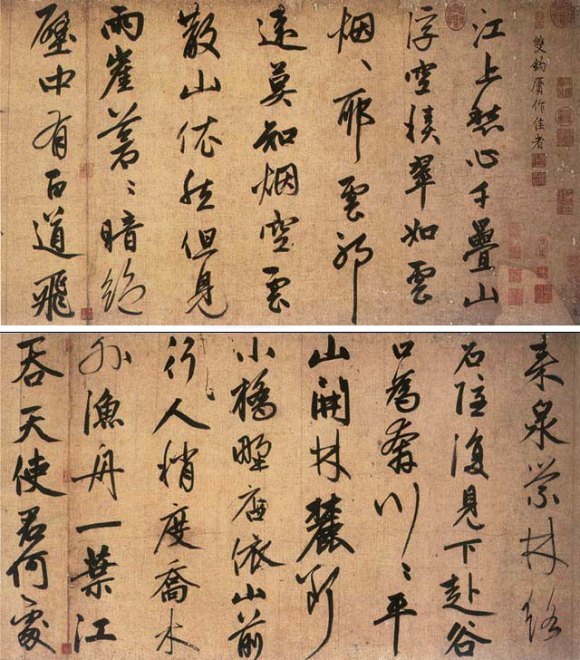 雙鈎贋作佳者
江上愁心千疊山
浮空積翠如雲
烟〻耶雲耶
遠莫知烟空雲
散山依然但見
兩崖蒼〻暗絕
壑中有百道飛
来泉縈林絡
石隱復見下赴谷
口為奔川〻平
山開林麓斷
小橋野店依山前
行人稍度喬木
外漁舟一葉江
吞天使君何處